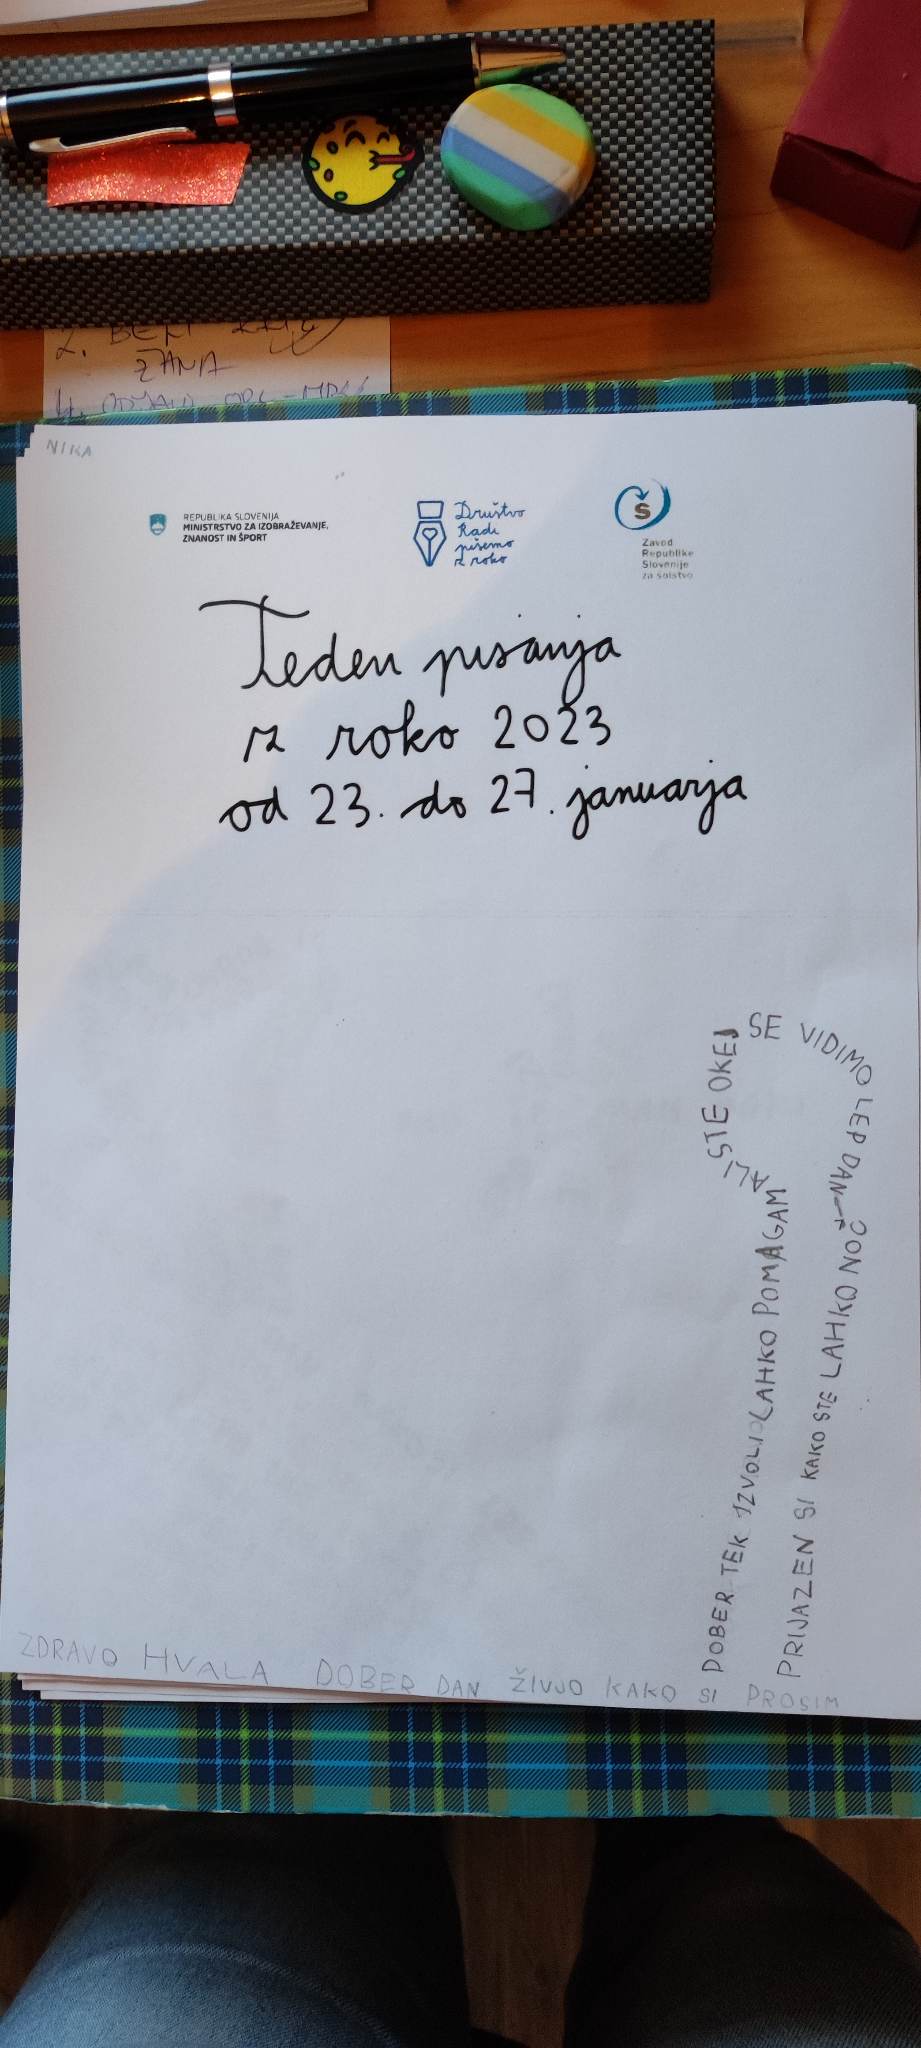 2. BERI
ŽANA
NIKA
REPUBLIKA SLOVENIJA
MINISTRSTVO ZA IZOBRAŽEVANJE,
ZNANOST IN ŠPORT
Društvo
Radi
pišemo
z roko
Š
Zavod
Republike
Slovenije
za šolstvo
Teden pisanja
z roko 2023
od 23. do 27. januarja
DOBER TEK IZVOLI LAHKO POMAGAM
ALI STE OKEJ
SE VIDIMO LEP DAN
PRIJAZEN SI KAKO STE LAHKO NOČ
ZDRAVO HVALA DOBER DAN ŽIVJO KAKO SI PROSIM